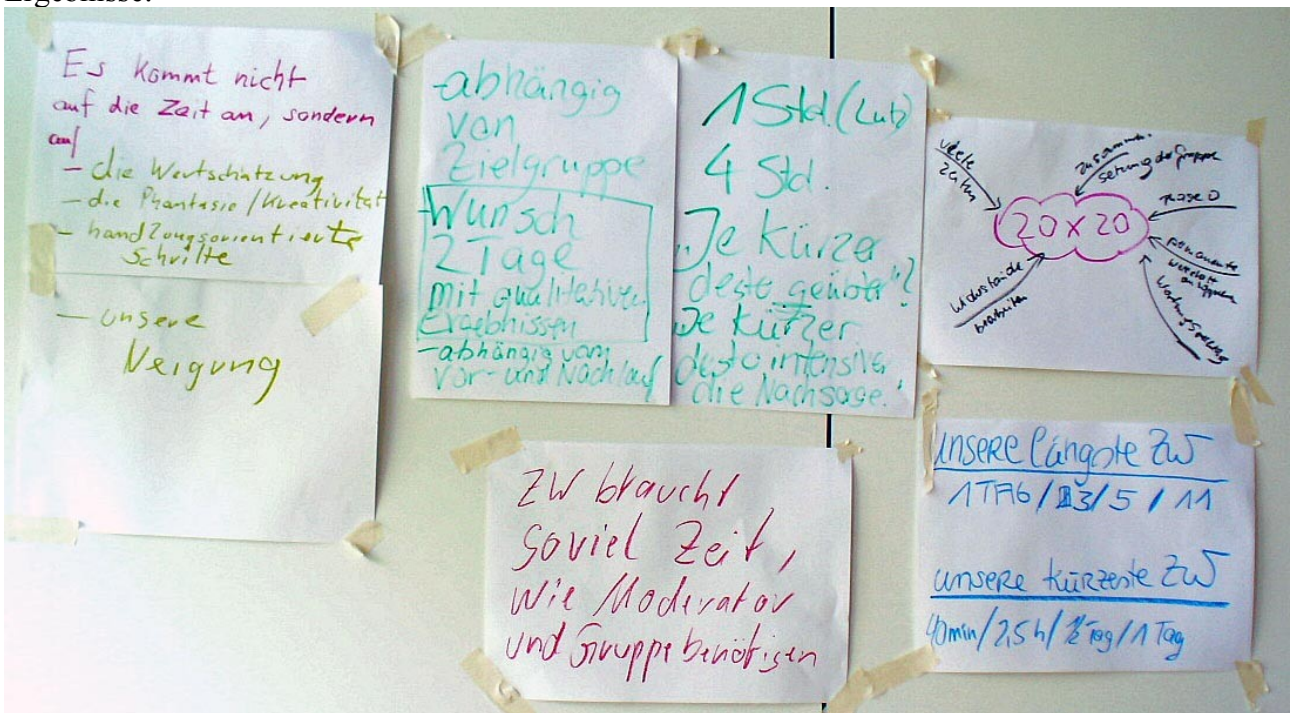 Ergebnisse:
Es kommt nicht
auf die Zeit an, sondern
auf
- die Wertschätzung
- die Phantasie / Kreativität
- handlungsorientierte
Schritte
- unsere
Neigung
-abhängig
von
Zielgruppe
-Wunsch
2 Tage
mit qualitativen
Ergebnissen
-abhängig vom
Vor- und Nachlauf
1 Std. (Lutz)
4 Std.
"Je kürzer
desto geübter"?
"Je kürzer
desto intensiver
die Nachsorge."
viele
Zeiten
Zusammen-
setzung der Gruppe
Phase 0
permanente
Widerstände
bearbeiten
20 x 20
ZW braucht
soviel Zeit,
wie Moderator
und Gruppe benötigen
unsere längste ZW
1 TAG / 3 / 5 / 11
unsere kürzeste ZW
40min / 2,5 h / ½ Tag / 1 Tag